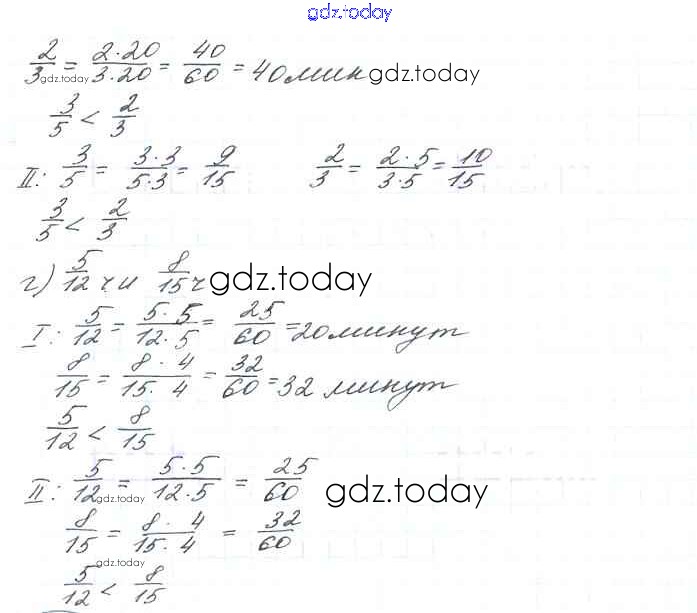 gdz.today
2/3 = 2·20/3·20 = 40/60 = 40 мин gdz.today gdz.today
3/5 < 2/3
II: 3/5 = 3·3/5·3 = 9/15 2/3 = 2·5/3·5 = 10/15
3/5 < 2/3
г) 5/12 ч и 8/15 ч gdz.today
I: 5/12 = 5·5/12·5 = 25/60 = 20 минут
8/15 = 8·4/15·4 = 32/60 = 32 минут
5/12 < 8/15
II: 5/12 = 5·5/12·5 = 25/60 gdz.today gdz.today
8/15 = 8·4/15·4 = 32/60
5/12 < 8/15 gdz.today